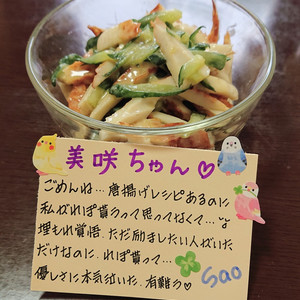 美咲ちゃん♡
ごめんね…唐揚げレシピあるのに
私がれぽ貰うって思ってなくて…
埋もれ覚悟、ただ励ましたい人がいた
だけなのに、れぽ貰って…
優しさに本気泣いた。有難う♡
Sao